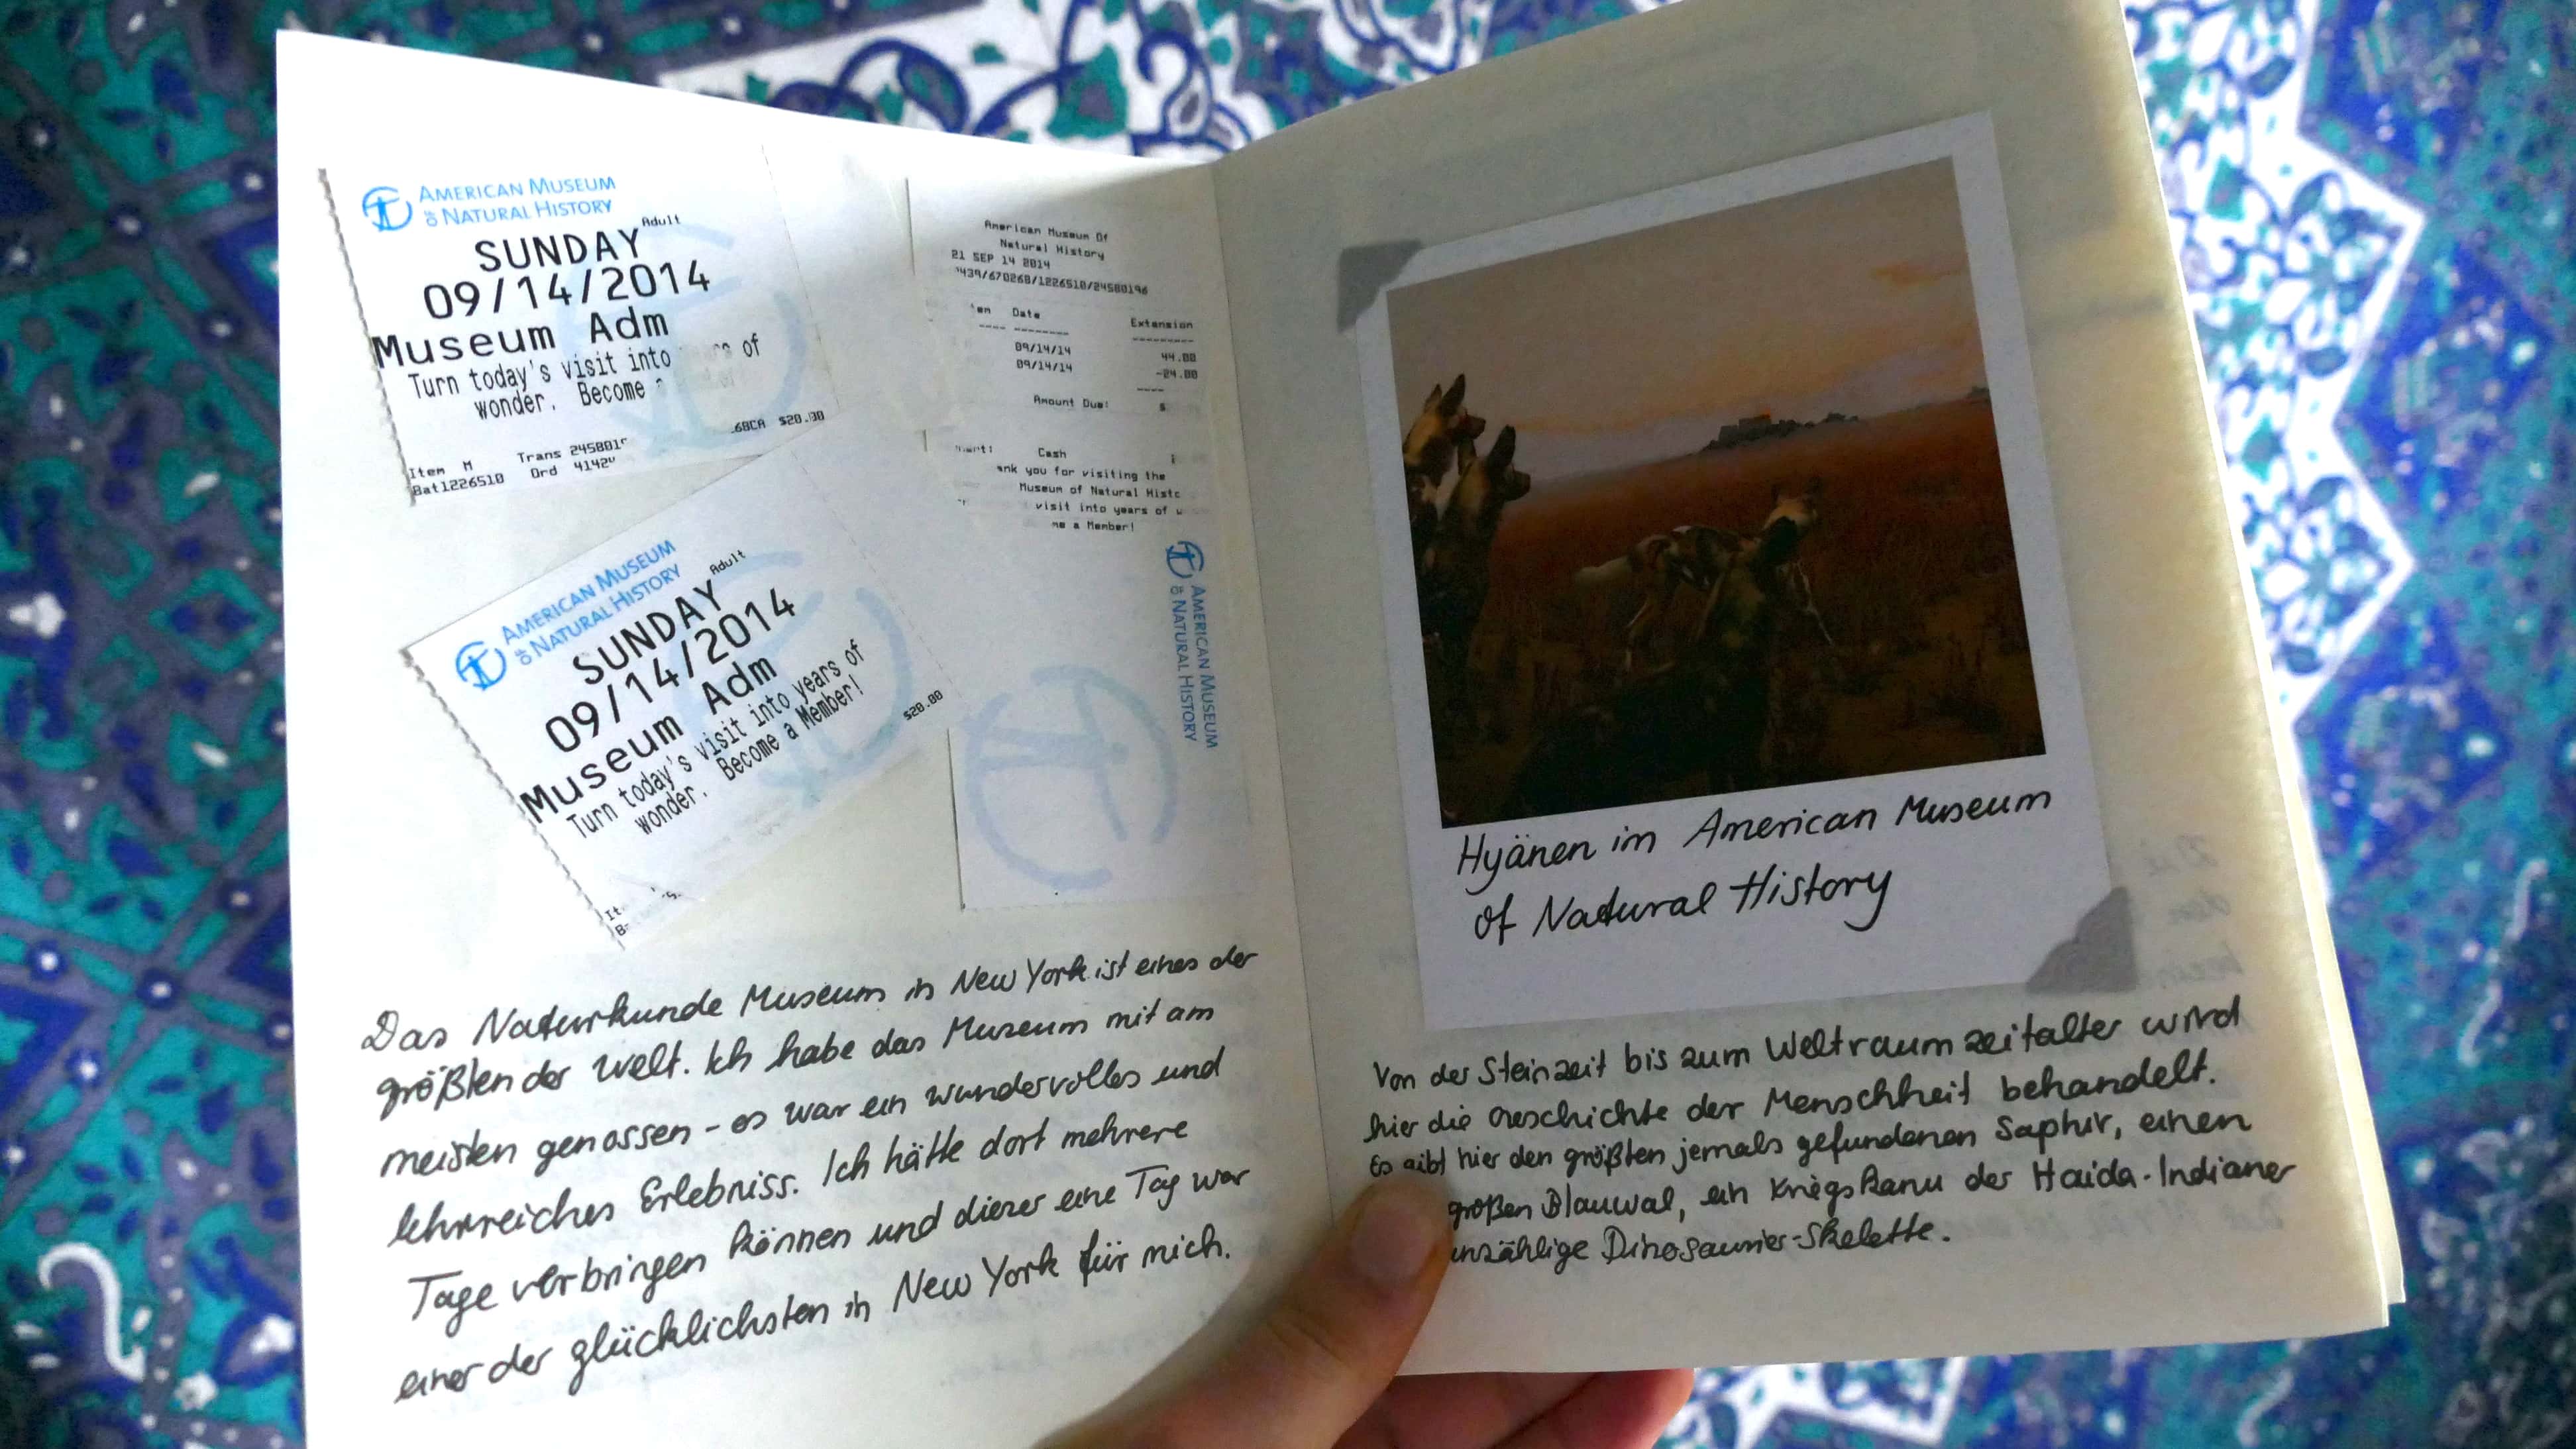 AMERICAN MUSEUM
OF NATURAL HISTORY
Adult
SUNDAY
09/14/2014
Museum Adm
Turn today's visit into of
wonder. Become
68CA $20.00
Item M Trans
Bat1226510 Ord
AMERICAN MUSEUM
OF NATURAL HISTORY
Adult
SUNDAY
09/14/2014
Museum Adm
Turn today's visit into years of
wonder. Become a Member!
$20.00
American Museum Of
Natural History
21 SEP 14 2014
439/670268/1226510/24580196
Date
Extension
09/14/14 44.00
09/14/14 -24.00
Amount Due: $
Cash
ank you for visiting the
Museum of Natural Histo
visit into years of w
me a Member!
AMERICAN MUSEUM
OF NATURAL HISTORY
Das Naturkunde Museum in New York ist eines der
größten der Welt. Ich habe das Museum mit am
meisten genossen - es war ein wundervolles und
lehrreiches Erlebniss. Ich hätte dort mehrere
Tage verbringen können und dieser eine Tag war
einer der glücklichsten in New York für mich.
Hyänen im American Museum
of Natural History
Von der Steinzeit bis zum Weltraumzeitalter wird
hier die Geschichte der Menschheit behandelt.
Es gibt hier den größten jemals gefundenen Saphir, einen
großen Blauwal, ein Kriegskanu der Haida-Indianer
unzählige Dinosaurier-Skelette.